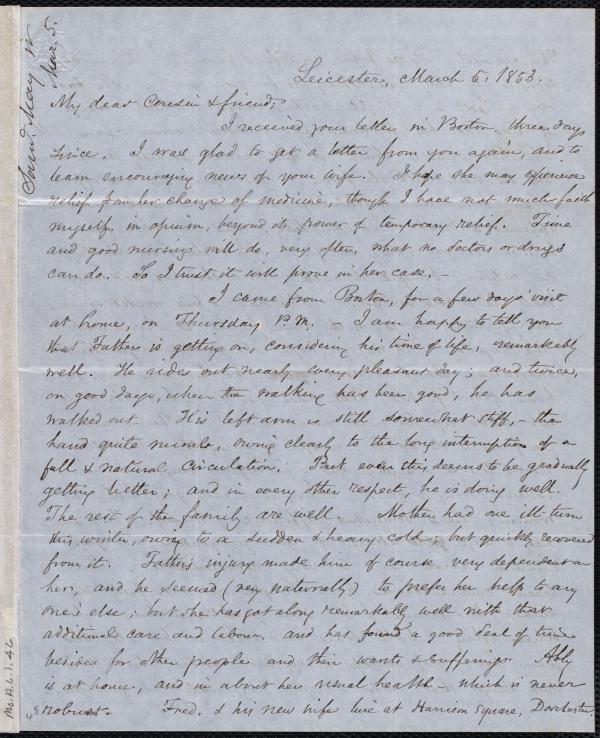 Leicester, March 5, 1853.
My dear Cousin & friend;
I received your letter in Boston, three days
since. I was glad to get a letter from you again, and to
learn encouraging news of your wife. I hope she may experience
relief from her change of medicine, though I have not much faith
myself, in opium, beyond its power of temporary relief. Time
and good nursing will do, very often, what no doctors or drugs
can do. So I trust it will prove in her case. –
I came from Boston, for a few days' visit
at home, on Thursday, P.M. – I am happy to tell you
that Father is getting on, considering his time of life, remarkably
well. He rides out nearly every pleasant day; and twice,
on good days, when the walking has been good, he has
walked out. His left arm is still somewhat stiff, – the
hand quite , owing clearly to the long interruption of a
full & natural circulation. But even this seems to be gradually
getting better; and in every other respect, he is doing well.
The rest of the family are well. Mother had one ill turn
this winter, owing to a sudden & heavy cold; but quickly recovered
from it. Father's injury made him of course very dependent on
her, and he seemed (very naturally) to prefer her help to any
one's else; but she has got along remarkably well with that
additional care and labour, and has found a good deal of time
besides for other people and their wants & sufferings. Abby
is at home, and in about her usual health – which is never
robust. Fred. & his new wife live at Harrison Square, Dorchester.
Saml. May Jr.
Mar. 5.
Ms.A.1.46